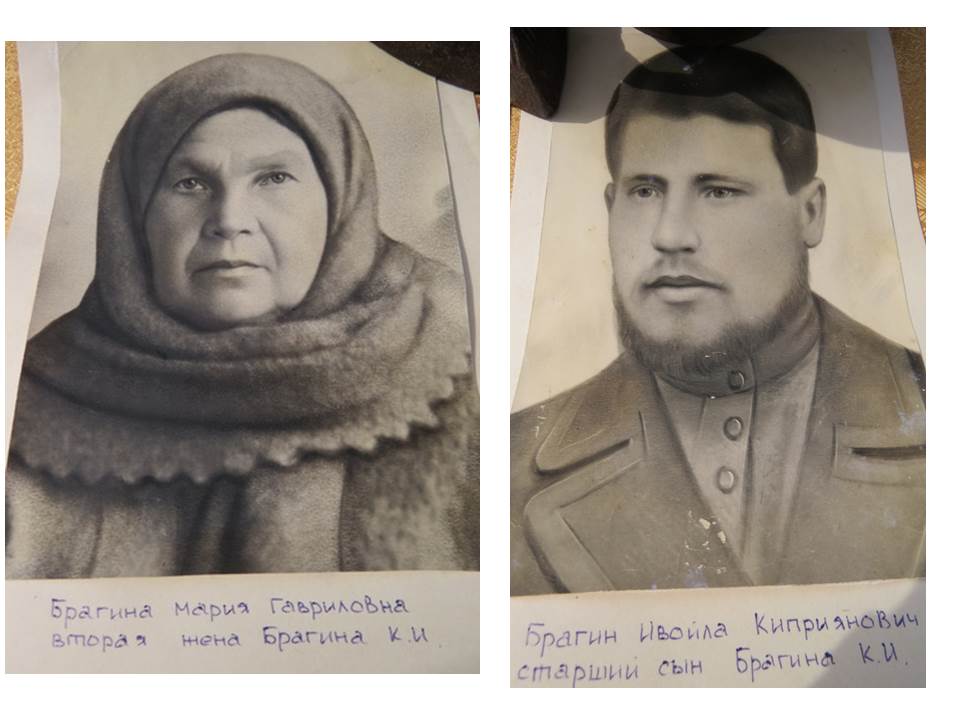 Брагина Мария Гавриловна
вторая жена Брагина К.И.
Брагин Ивойла Киприянович
старший сын Брагина К.И.